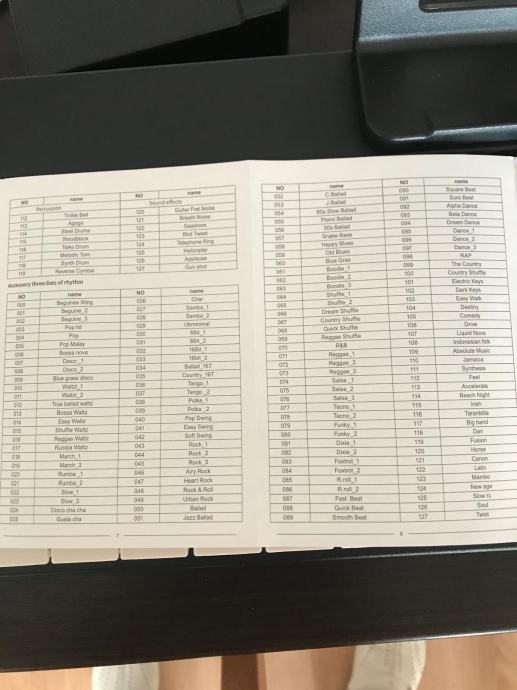 NO name NO name
Percussion Sound effects
112 Tinkle Bell 120 Guitar Fret Noise
113 Agogo 121 Breath Noise
114 Steel Drums 122 Seashore
115 Woodblock 123 Bird Tweet
116 Taiko Drum 124 Telephone Ring
117 Melodic Tom 125 Helicopter
118 Synth Drum 126 Applause
119 Reverse Cymbal 127 Gun shot
Accessory three:lists of rhythm
NO name NO name
000 Beguines Wing 026 Char
001 Beguine_2 027 Samba_1
002 Beguine_3 028 Samba_2
003 Pop hit 029 Ubminimal
004 Pop 030 8Bit_1
005 Pop Malay 031 8Bit_2
006 Bossa nova 032 16Bit_1
007 Disco_1 033 16bit_2
008 Disco_2 034 Ballad_16T
009 Blue grass disco 035 Country_16T
010 Waltzt_1 036 Tango_1
011 Waltzt_2 037 Tango_2
012 True ballad waltz 038 Polka_1
013 Bossa Waltz 039 Polka_2
014 Easy Waltz 040 Pop Swing
015 Shuffle Waltz 041 Easy Swing
016 Reggae Waltz 042 Soft Swing
017 Rumba Waltz 043 Rock_1
018 March_1 044 Rock_2
019 March_2 045 Rock_3
020 Rumba_1 046 Airy Rock
021 Rumba_2 047 Heart Rock
022 Slow_1 048 Rock & Roll
023 Slow_2 049 Urban Rock
024 Disco cha cha 050 Ballad
025 Guala cha 051 Jazz Ballad
7
NO name NO name
052 C.Ballad 090 Square Beat
053 J.Ballad 091 Euro Beat
054 80s Slow Ballad 092 Alpha Dance
055 Piano Ballad 093 Beta Dance
056 50s Ballad 094 Dream Dance
057 Snake Base 095 Dance_1
058 Happy Blues 096 Dance_2
059 Old Blues 097 Dance_3
060 Blue Gras 098 RAP
061 Boodie_1 099 The Country
062 Boodie_2 100 Country Shuffle
063 Boodie_3 101 Electric Keys
064 Shuffle_1 102 Dark Keys
065 Shuffle_2 103 Easy Walk
066 Dream Shuffle 104 Destiny
067 Country Shuffle 105 Comedy
068 Quick Shuffle 106 Drive
069 Reggae Shuffle 107 Liquid Nova
070 R&B 108 Indonesian folk
071 Reggae_1 109 Absolute Music
072 Reggae_2 110 Jamaica
073 Reggae_3 111 Synthesis
074 Salsa_1 112 Feel
075 Salsa_2 113 Accelerate
076 Salsa_3 114 Beach Night
077 Tecno_1 115 Irish
078 Tecno_2 116 Tarantella
079 Funky_1 117 Big band
080 Funky_2 118 Dan
081 Dixie_1 119 Fusion
082 Dixie_2 120 Horse
083 Foxtrot_1 121 Canon
084 Foxtrot_2 122 Latin
085 R.roll_1 123 Mambo
086 R.roll_2 124 New age
087 Fast Beat 125 Slow ro
088 Quick Beat 126 Soul
089 Smooth Beat 127 Twist
8